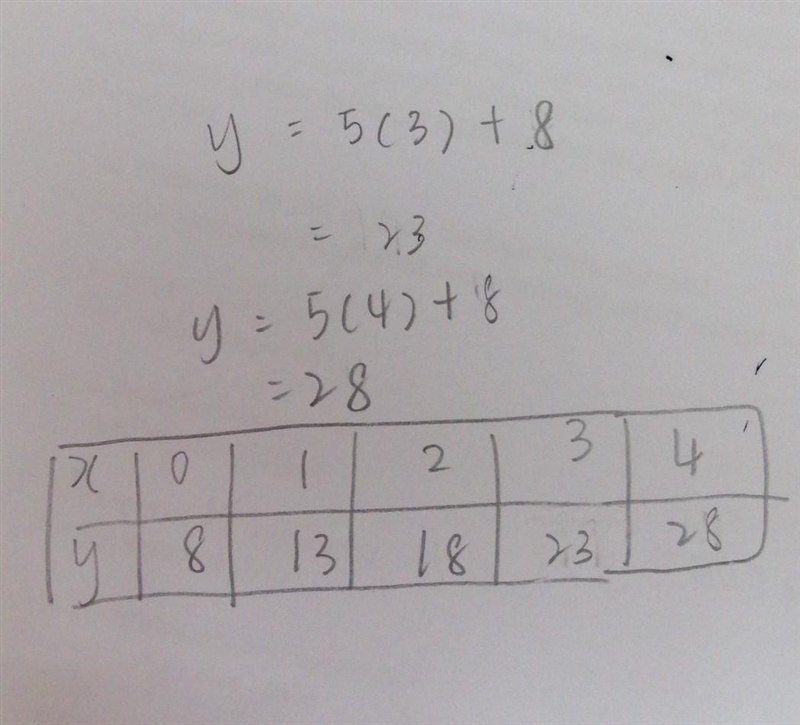 y = 5(3) + 8
= 23
y = 5(4) + 8
= 28
x 0 1 2 3 4
y 8 13 18 23 28